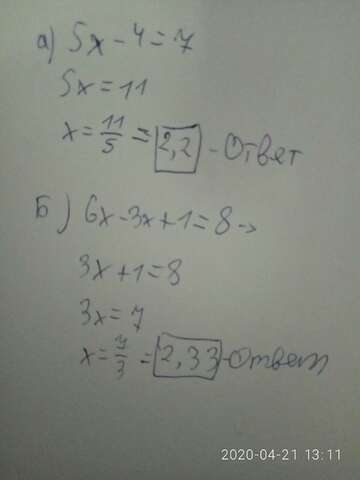 а) 5x - 4 = 7
5x = 11
x = 11/5 = 2,2 - Ответ
Б) 6x - 3x + 1 = 8 →
3x + 1 = 8
3x = 7
x = 7/3 = 2,33 - Ответ
2020-04-21 13:11